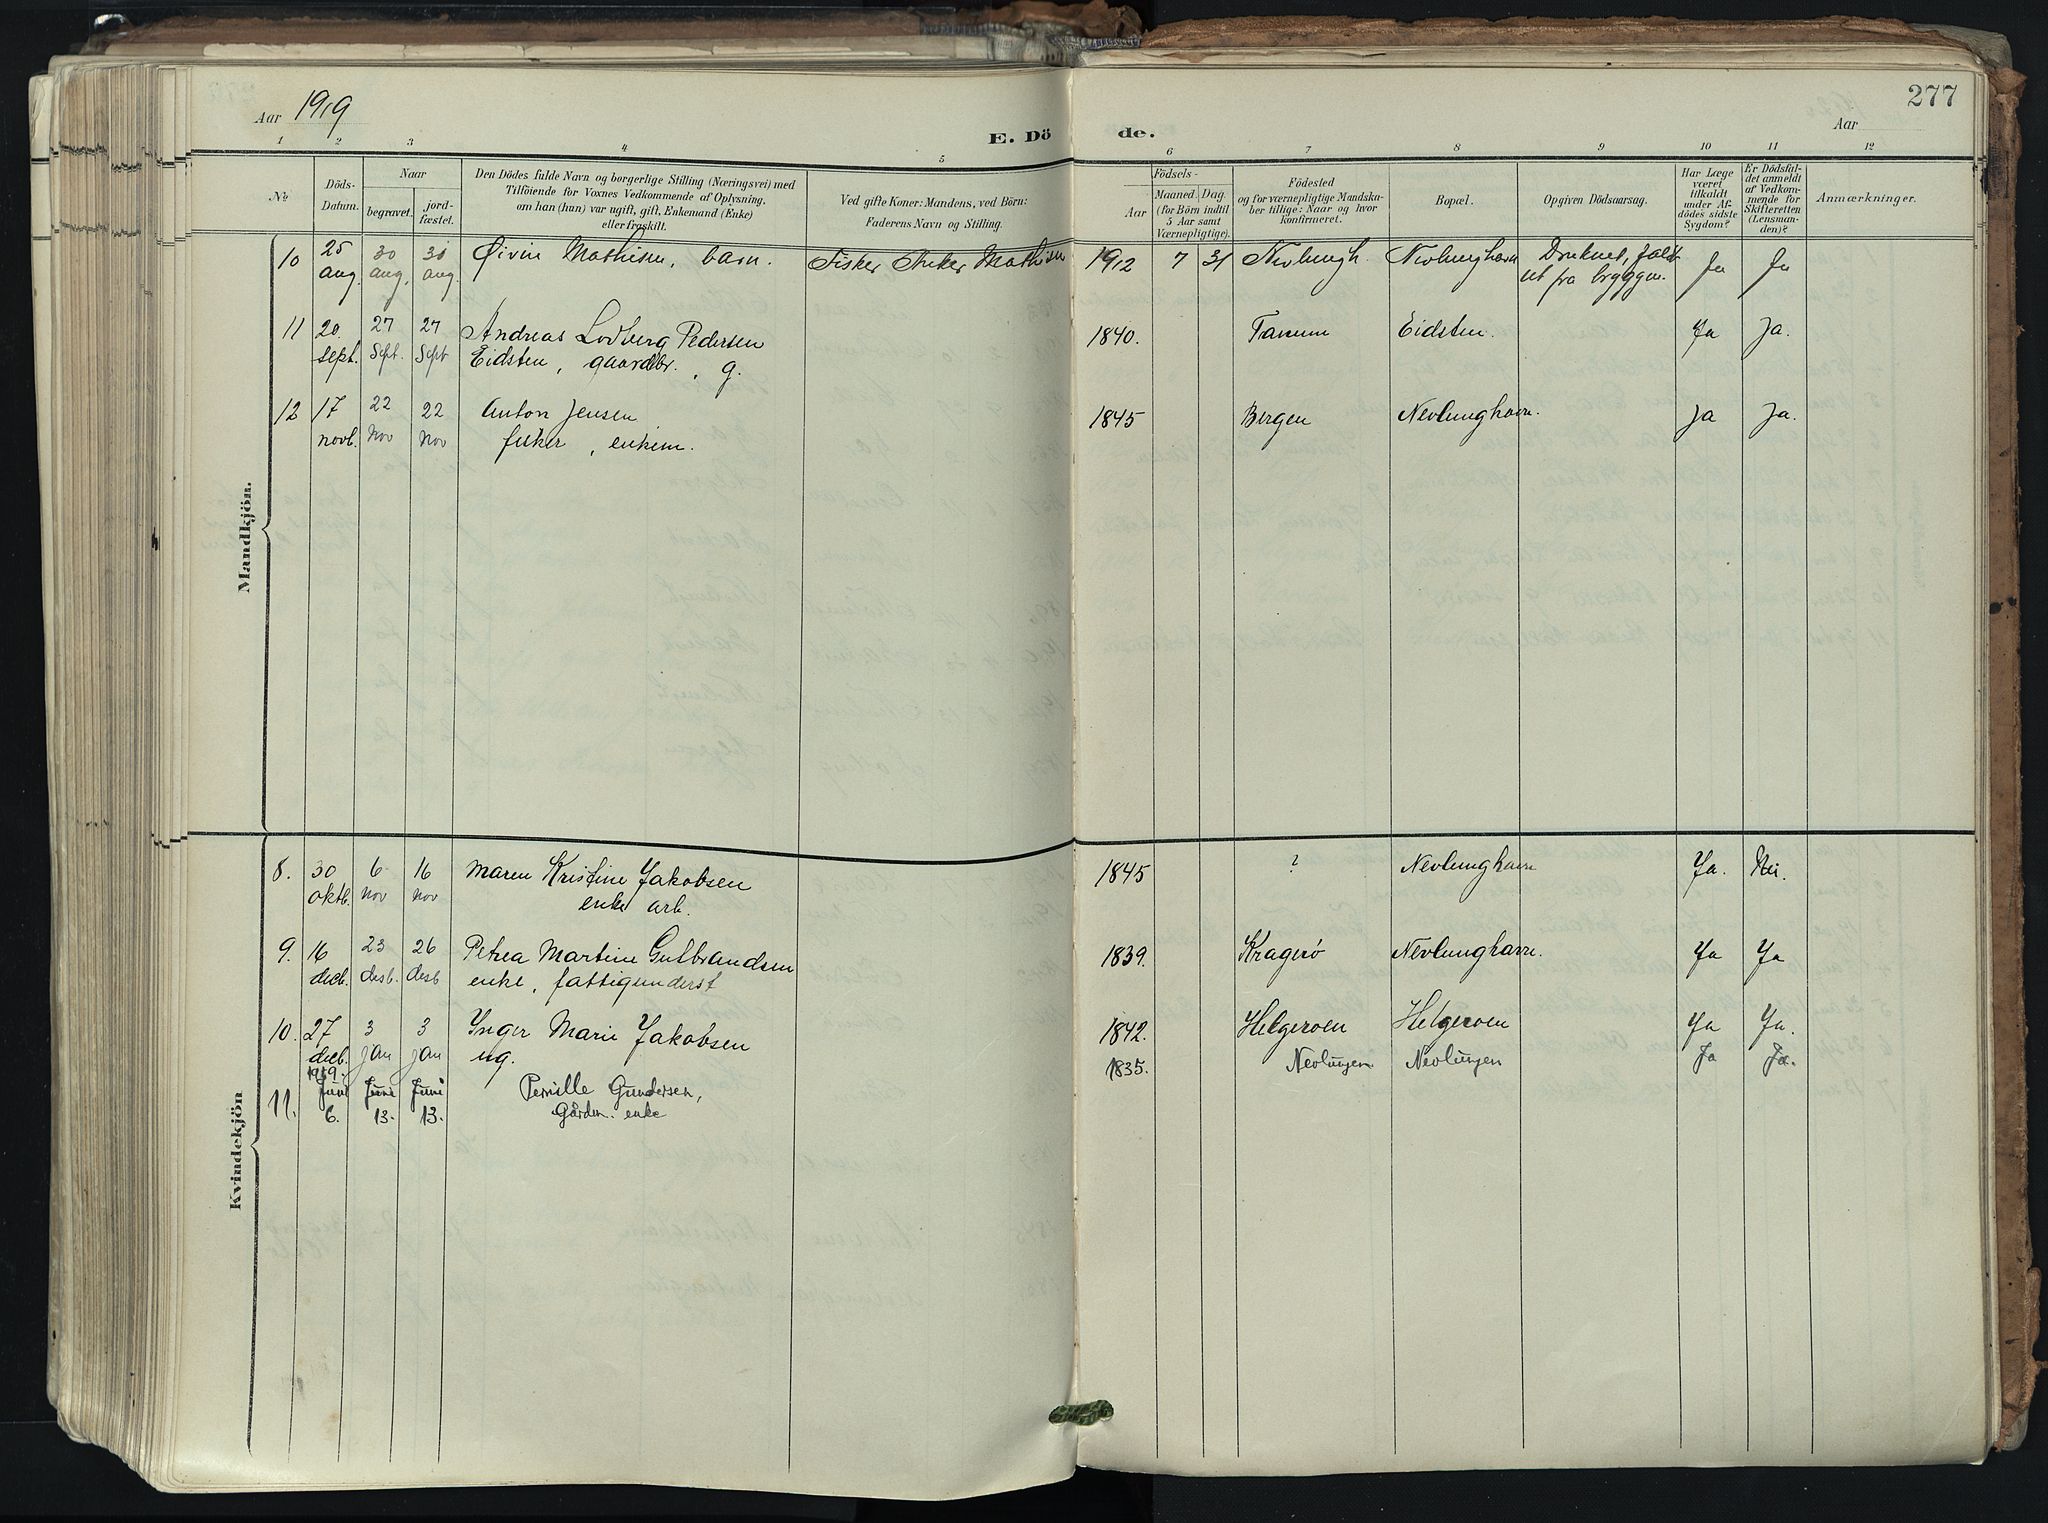 277
Aar 1919
E. Dö de.
Aar
1 2 3 4 5 6 7 8 9 10 11 12
No
Döds-Datum.
Naar
begravet.
jord-fæstet.
Den Dödes fulde Navn og borgerlige Stilling (Næringsvei) med
Tilföiende for Voxnes Vedkommende af Oplysning,
om han (hun) var ugift, gift, Enkemand (Enke)
eller fraskilt.
Ved gifte Koner: Mandens, ved Börn:
Faderens Navn og Stilling.
Födsels-
Aar
Maaned. Dag.
(for Börn indtil
5 Aar samt
Værnepligtige).
Födested
og for værnepligtige Mandska-
ber tillige: Naar og hvor
konfirmeret.
Bopæl.
Opgiven Dödsaarsag.
Har Læge
været
tilkaldt
under Af-
dödes sidste
Sygdom?
Er Dödsfal-
det anmeldt
af Vedkom-
mende for
Skifteretten
(Lensman-
den)?
Anmærkninger.
Mandkjön.
10 25 aug. 30 aug. 30 aug. Øivin Mathisen, barn. Fisker Anker Mathisen 1912 7 31 Nevlungh. Nevlunghavn Druknet, faldt
ut fra bryggen. Ja Ja
11 20. sept. 27 Sept. 27 Sept Andreas Lodberg Pedersen
Eidsten, gaardbr., g. 1840. Tanum Eidsten. Ja Ja.
12 17 novb. 22 Nov 22 Nov Anton Jensen
fisker, enkem. 1845 Bergen Nevlunghavn. Ja Ja.
Kvindekjön
8. 30 oktb. 6 Nov 16 Nov Maren Kristine Jakobsen
enke arb. 1845 ? Nevlunghavn Ja. Nei.
9. 16 decb. 23 desb. 26 desb Petrea Martine Gulbrandsen
enke, fattigunderst 1839. Kragerø Nevlunghavn. Ja Ja
10. 27 decb. 3 jan 3 jan Inger Marie Jakobsen
ug. 1842. Helgeroen Helgeroen Ja Ja.
11. 1919. Juni 6. Juni 13. Juni 13. Pernille Gundersen,
Gårdm. enke 1835. Nevlungen Nevlungen Ja Ja.